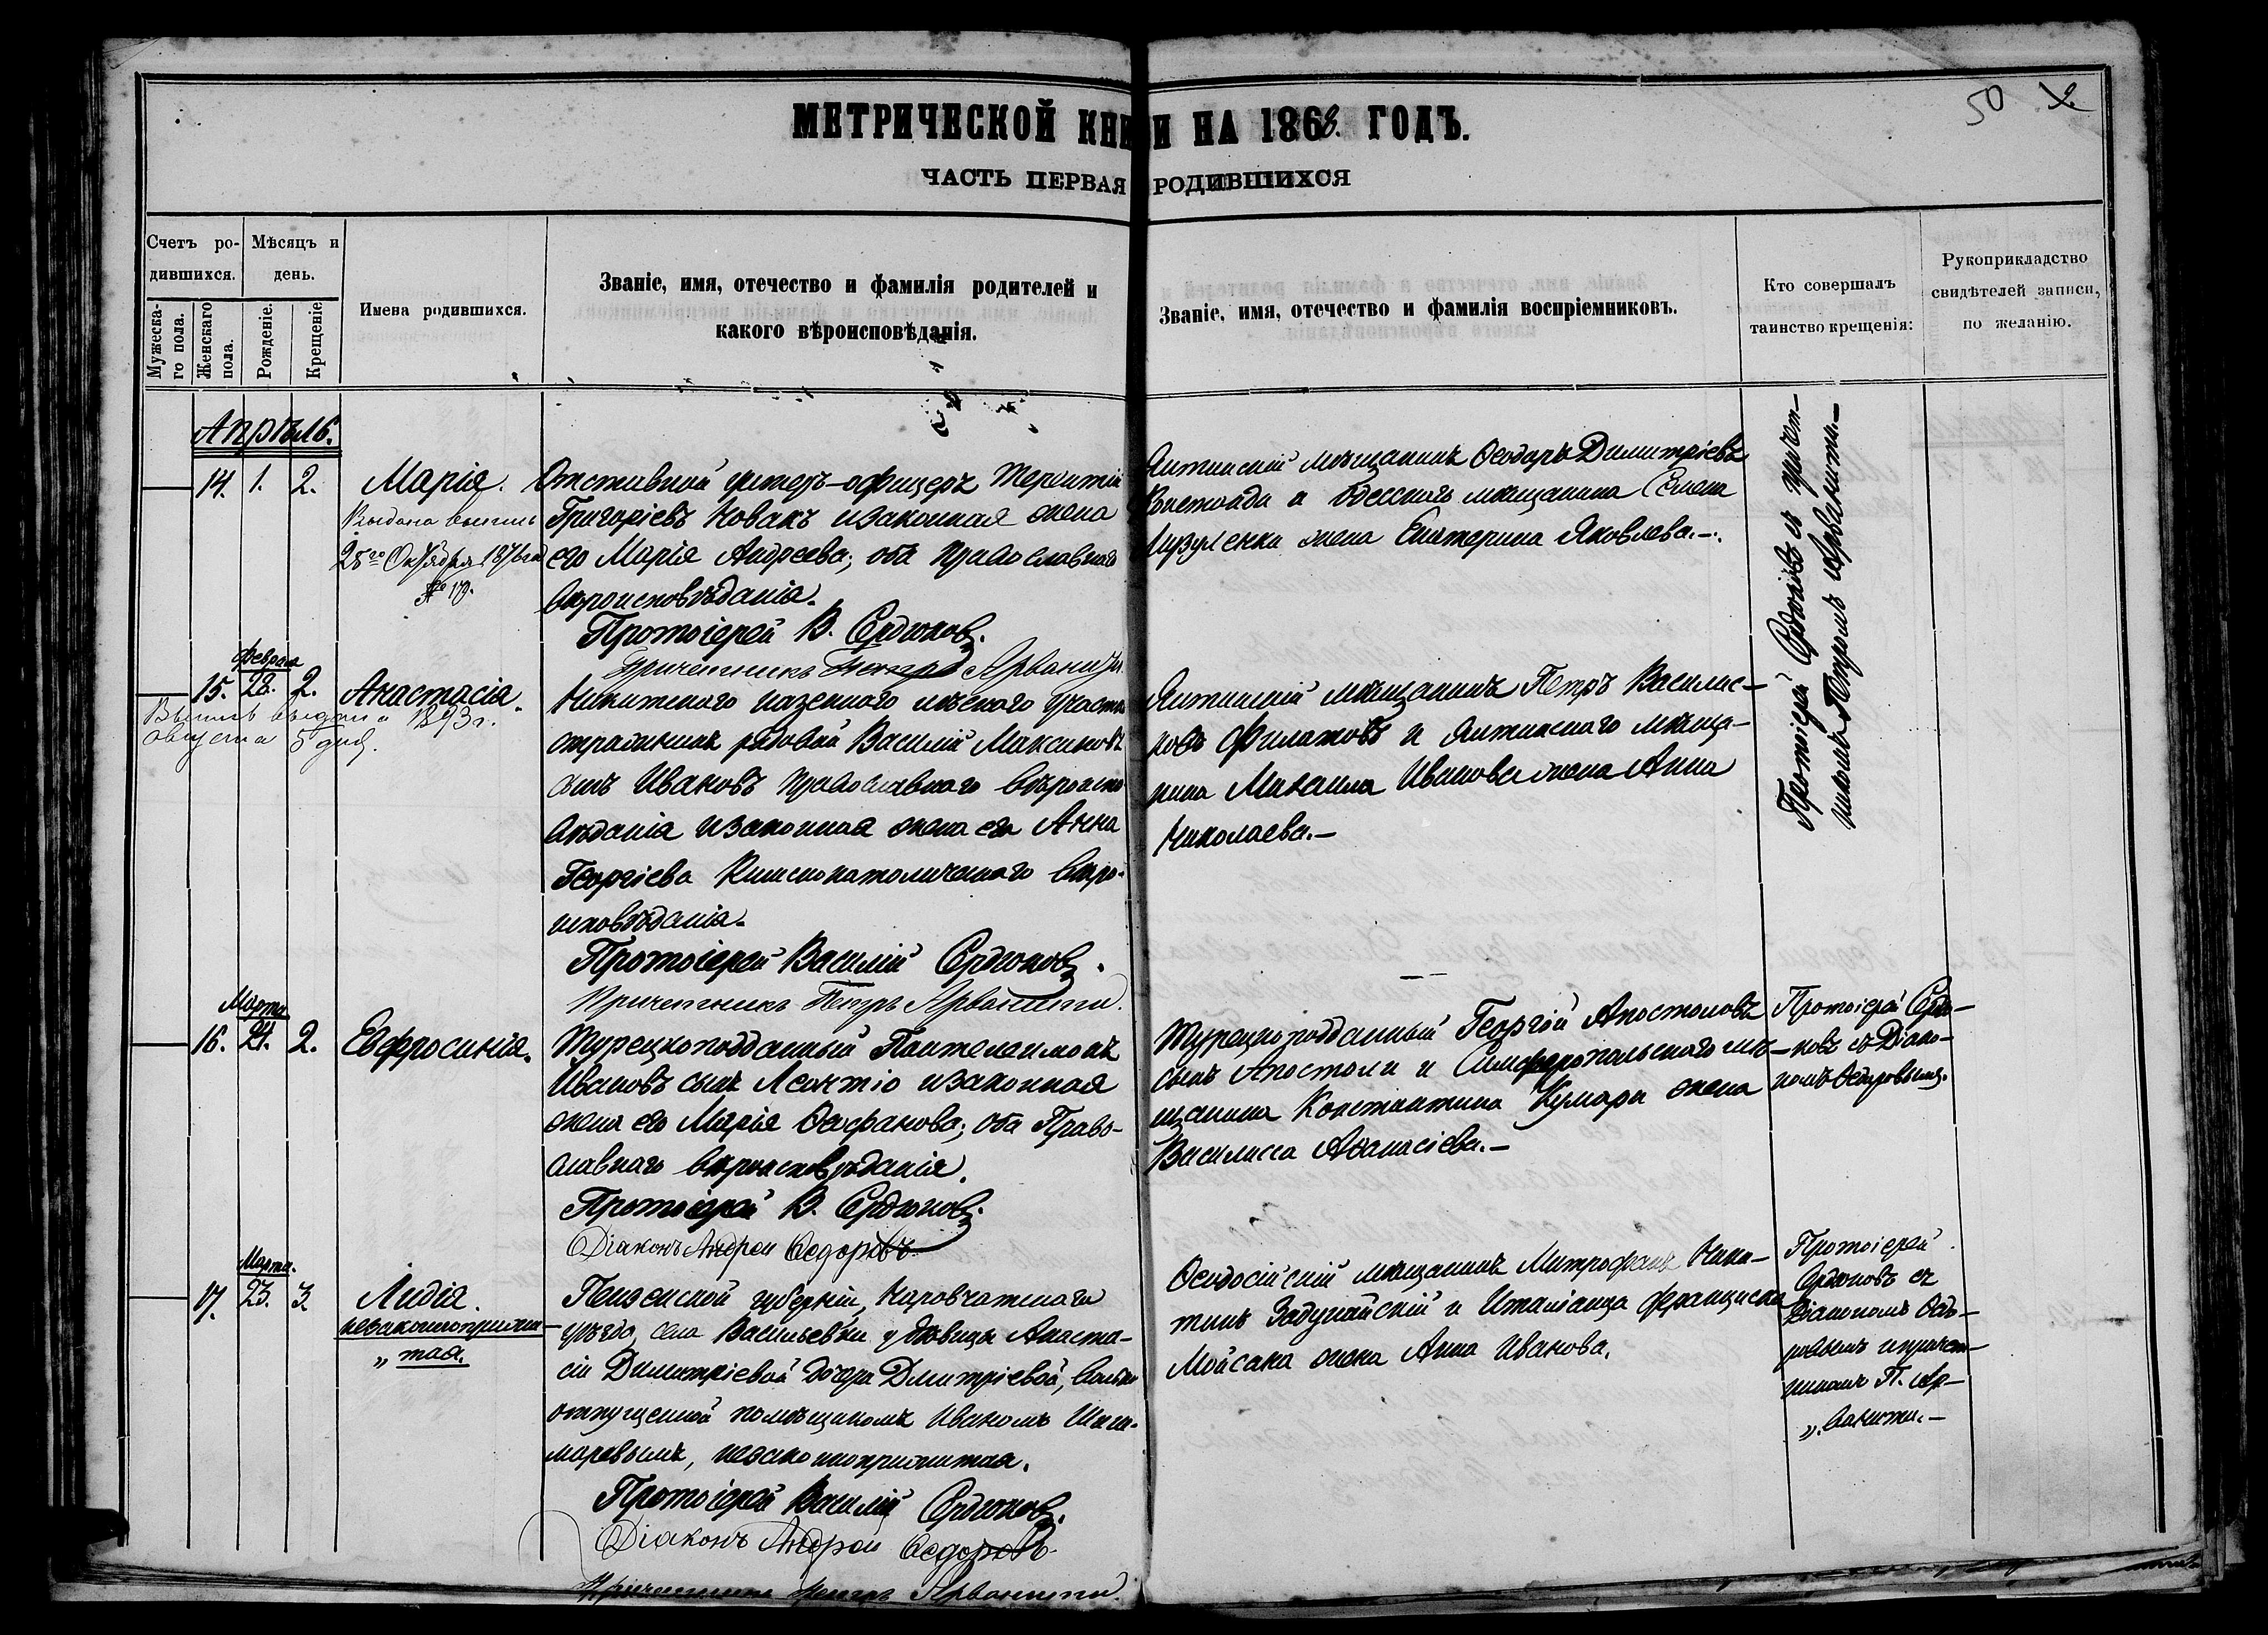 50 2.
МЕТРИЧЕСКОЙ КНИГИ НА 1868. ГОДЪ.
ЧАСТЬ ПЕРВАЯ РОДИВШИХСЯ
Счетъ ро-
дившихся.
Мужеска-
го пола.
Женскаго
пола.
Мѣсяцъ и
день.
Рожденіе.
Крещеніе.
Имена родившихся.
Званіе, имя, отечество и фамилія родителей и
какого вѣроисповѣданія.
Званіе, имя, отечество и фамилія воспріемниковъ.
Кто совершалъ
таинство крещенія:
Рукоприкладство
свидѣтелей записи,
по желанію.
Апрѣль.
14. 1. 2.
Марія.
Выдана выпись
28го Октября
№ 179.
Отставной унтеръ-офицеръ Терентій
Григорьевъ Новакъ изаконная жена
его Марія Андреева; оба православнаго
вѣроисповѣданія.
Протоіерей В. Сердюковъ.
Причетникъ Петръ Арванити
Ялтинскій мѣщанинъ Ѳеодоръ Димитріевъ
и Одесскаго мѣщанина Семена
жена Екатерина Яковлева.
Протоіерей Сердюковъ съ причет-
никомъ Петромъ Арванити.
Февраля
15. 28. 2.
Анастасія.
Выпись выдана 1893 г.
августа 5 дня.
Никитскаго казеннаго лѣснаго участка
стражникъ рядовой Василій Максимовъ
сынъ Ивановъ православнаго вѣроиспо
вѣданія изаконная жена его Анна
Георгіева Римскокатолическаго вѣро-
исповѣданія.
Протоіерей Василій Сердюковъ.
Причетникъ Петръ Арванити.
Ялтинскій мѣщанинъ Петръ Василье-
ковъ Филатовъ и Ялтинскаго мѣща-
нина Михаила Иванова жена Анна
Николаева.
Марта
16. 21. 2.
Евфросинія.
Турецкоподданный Пантелеимонъ
Ивановъ сынъ Леонтіо изаконная
жена его Марія Стефанова; оба Право-
славнаго вѣроисповѣданія.
Протоіерей В. Сердюковъ.
Діаконъ Андрей Ѳедоровъ
Турецкоподданный Георгій Апостоловъ
сынъ Апостоли и Симферопольскаго мѣ-
щанина Константина Кумари жена
Василисса Аѳанасіева.
Протоіерей Сердю-
ковъ съ Діако-
номъ Ѳедоровымъ.
Марта.
17. 23. 3.
Лидія.
незаконноприжи-
„ тая.
Пензенской губерніи, Наровчатскаго
уѣзда, села Васильевки у дѣвицы Анаста-
сіи Димитріевой дочера Дмитріевой, вольно
отпущенной помѣщикомъ Иваномъ
незаконноприжитая.
Протоіерей Василій Сердюковъ.
Діаконъ Андрей Ѳедоровъ
Причетникъ Петръ Арванити.
Ѳеодосійскій мѣщанинъ Митрофанъ Ники-
тинъ Задунайскій и Италіанца Франциска
Мойсака жена Анна Иванова.
Протоіерей
Сердюковъ съ
Діакономъ Ѳедо-
ровымъ и причет-
никомъ П. Ар-
„ванити.